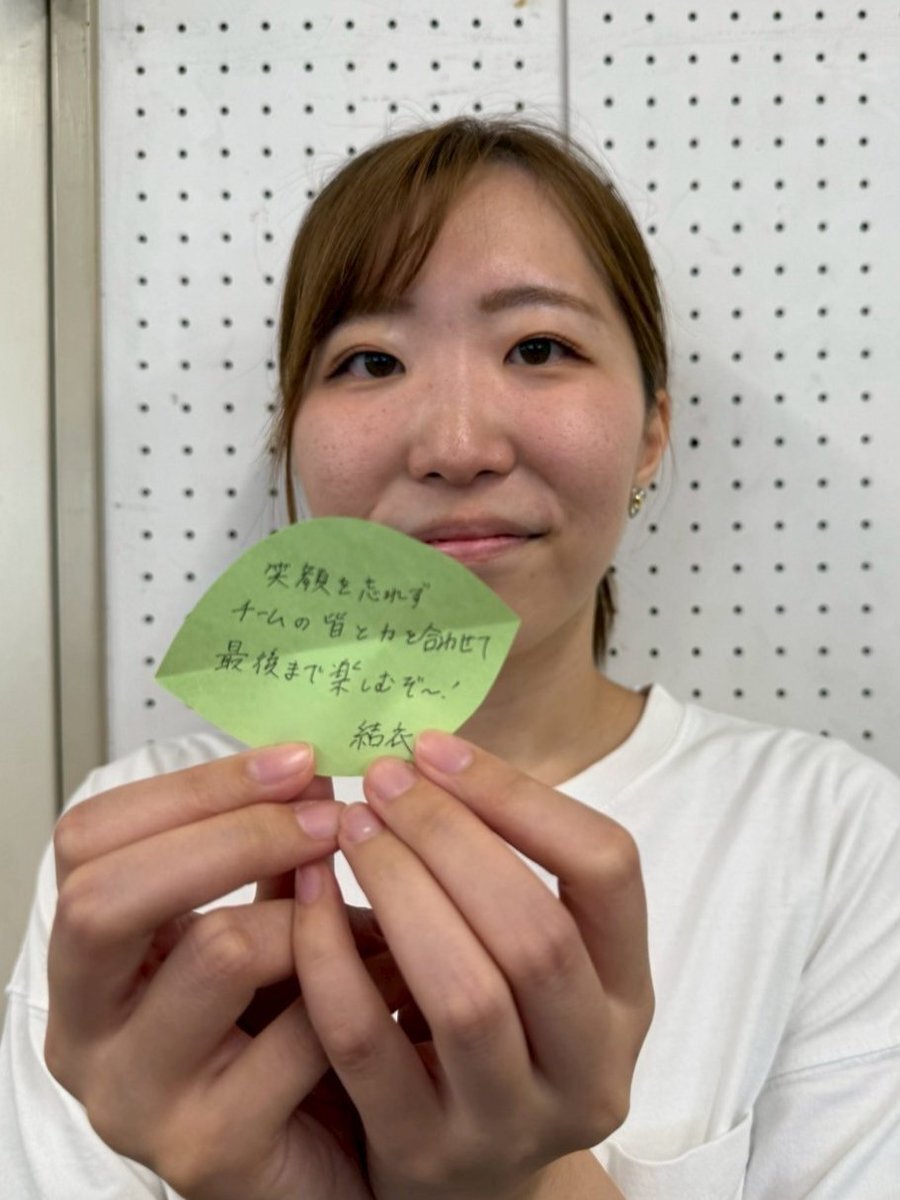 笑顔を忘れず
チームの皆と力を合わせて
最後まで楽しむぞ〜!
結衣